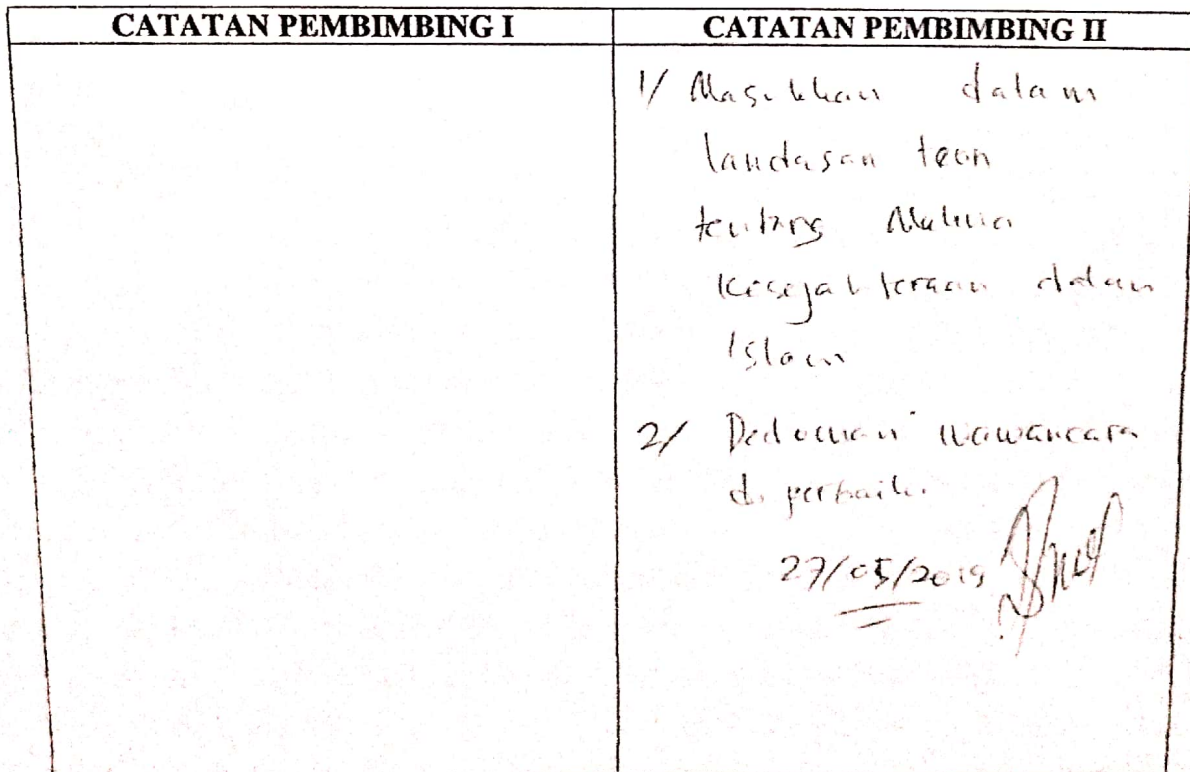 CATATAN PEMBIMBING I
CATATAN PEMBIMBING II
1/ Masukkan dalam
landasan teori
tentang Makna
Kesejahteraan dalam
Islam
2/ Pedoman wawancara
diperbaiki
27/05/2019